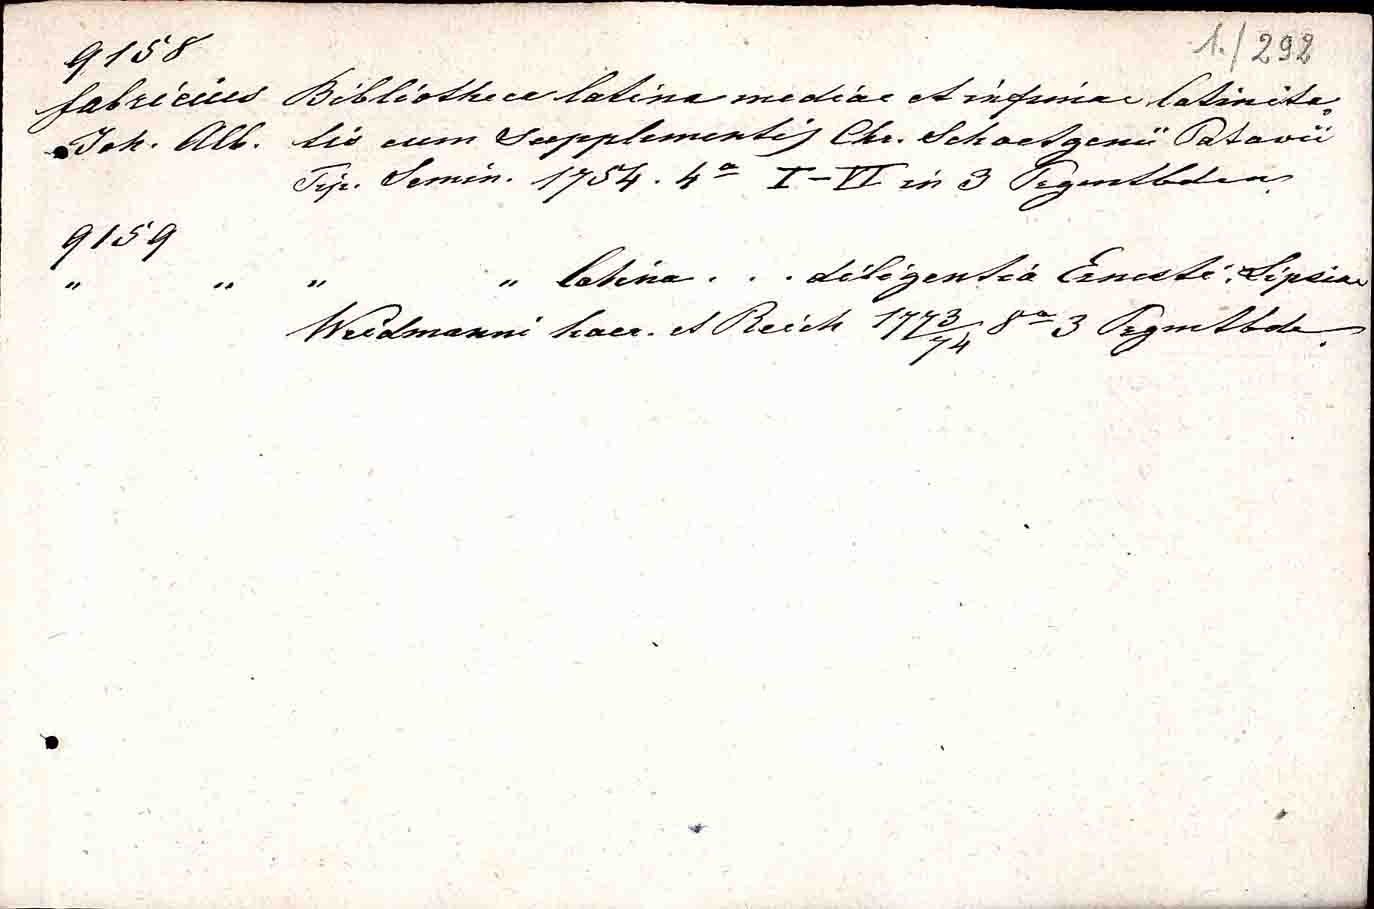 1./292
9158
Fabricius Bibliotheca latina mediae et infimae latinita
Joh. Alb. tis cum supplementis Chr. Schoetgenii Patavii
Typ. Semin. 1754. 4º I-VI in 3 Pgmtbden.
9159
" " " " latina . . . diligentia Ernesti. Lipsiae
Weidmanni haer. et Reich 1773/74 8º 3 Pgmtbde.